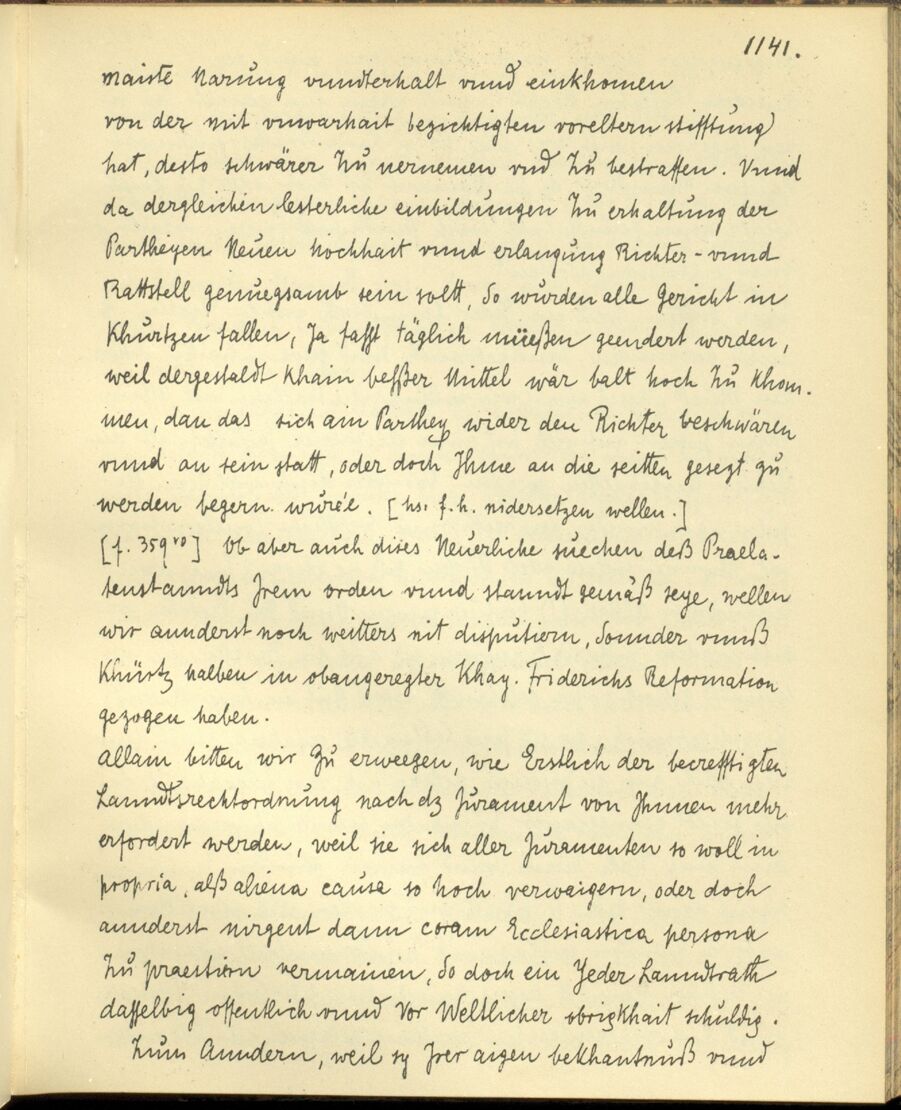 1141.
maiste Narung vnndterhalt vnnd einkhomen
von der mit vnwarhait bezichtigten voreltern stifftung
hat, desto schwärer Zu vernemen vnd Zu bestraffen. Vnnd
da dergleichen lesterliche einbildungen Zu erhaltung der
Partheyen Neuen hochhait vnnd erlangung Richter- vnnd
Rattstell genuegsamb sein soltt, So wurden alle Gericht in
Khürtzen fallen, Ja fasst täglich müeßen geendert werden,
weil dergestaldt Khain beßßer Mittel wär balt hoch Zu Khom-
men, dan das sich ain Parthey wider den Richter beschwären
vnnd an sein statt, oder doch Ihme an die seitten gesezt zu
werden begern wurde. [hs. f. h. nidersetzen wellen.]
[f. 359ro] Ob aber auch dises Neuerliche suechen deß Praela-
tenstanndts Jrem orden vnnd stanndt gemäß seye, wellen
wir annderst noch weitters nit disputiern, Sonnder vnnß
Khürtz halben in obangeregter Khay. Friderichs Reformation
gezogen haben.
Allain bitten wir Zu erweegen, wie Erstlich der becrefftigten
Lanndtsrechtordnung nach dz Jurament von Ihnnen mehr
erfordert werden, weil sie sich aller Juramenten so woll in
propria, alß aliena causa so hoch verwaigern, oder doch
annderst nirgent dann coram Ecclesiastica persona
Zu praestiern vermainen, So doch ein Jeder Lanndtrath
dasselbig offentlich vnnd Vor Weltlicher obrigkhait schuldig.
Zum Anndern, weil sy Jrer aigen bekhantnuß vnnd